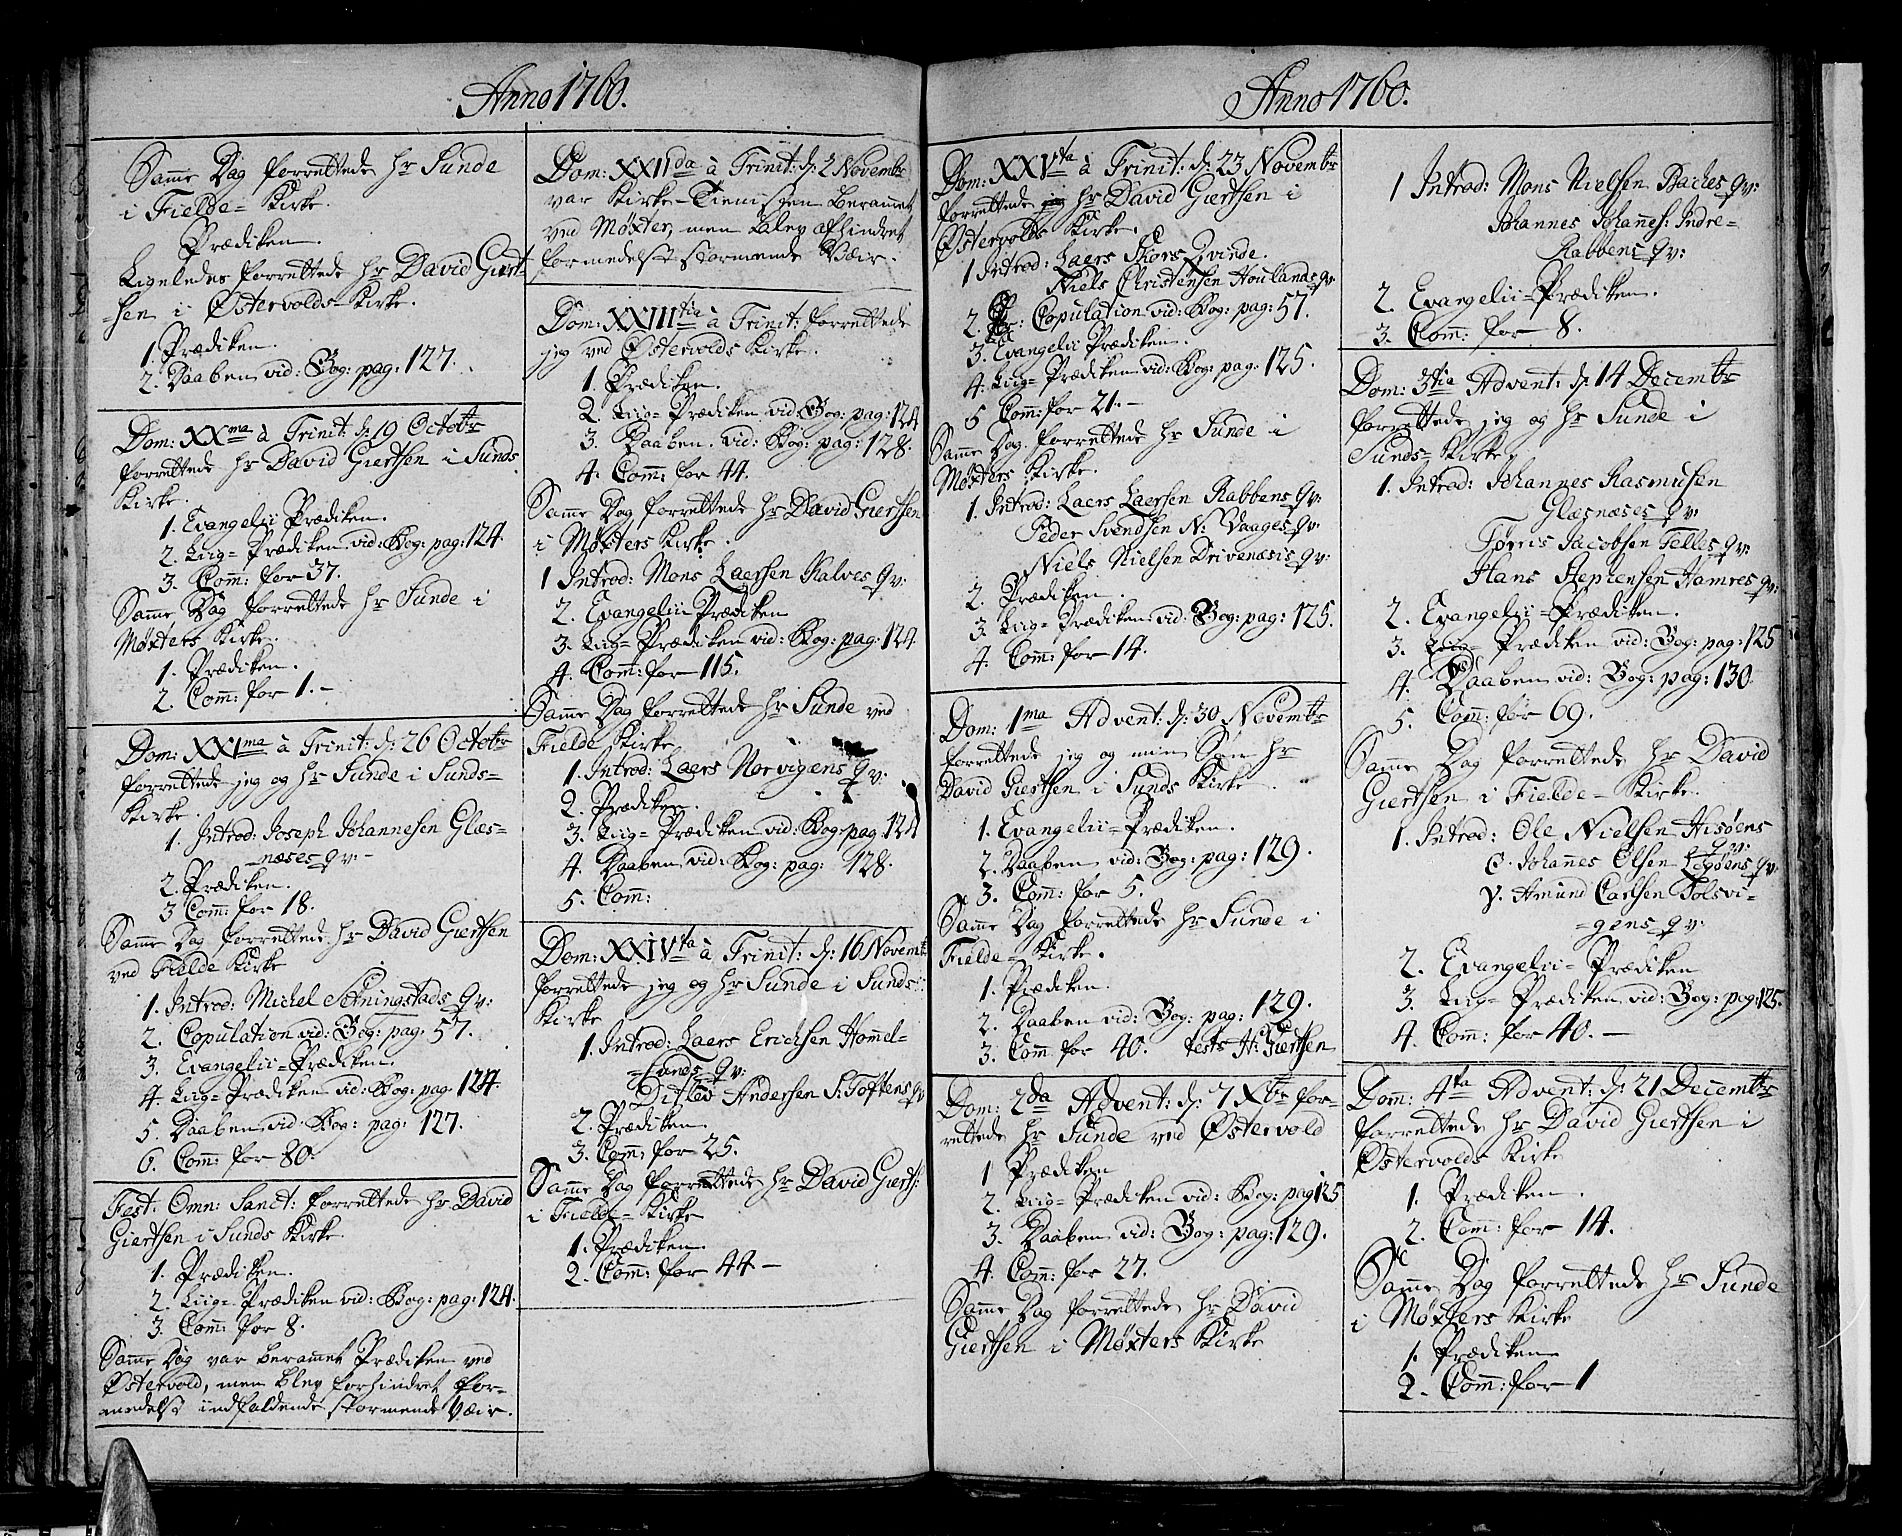 Anno 1760.
Samme Dag forrettede Hr Sunde
i Fielde-Kirke.
Prædiken.
Ligeledes forrettede Hr David Giert-
-sen i Østervolds-Kirke.
1. Prædiken.
2. Daaben vid: Bog: pag: 127.
Dom: XXma à Trinit: d: 19 Octobr
forrettede Hr David Giertsen i Sunds
Kirke.
1. Evangelii Prædiken.
2. Liig-Prædiken vid: Bog: pag: 124
3. Com̄: for 37.
Samme Dag forrettede Hr Sunde i
Møxters Kirke.
1. Prædiken.
2. Com̄: for 1.-
Dom: XXIma à Trinit: d: 26 Octobr
forrettede jeg og Hr Sunde i Sunds-
Kirke.
1. Introd: Joseph Johannesen Glæs-
næses qv:-
2. Prædiken.
3 Com̄: for 18.
Samme Dag forrettede Hr David Giertsen
ved Fielde Kirke
1. Introd: Michel Sörningstads qv:
2. Copulation vid: Bog: pag: 57.
3. Evangelii-Prædiken.
4. Liig-Prædiken vid: Bog: pag 124.
5. Daaben vid: Bog: pag: 127.
6. Com̄: for 80.
Fest: Omn: Sanct: forrettede Hr David
Giertsen i Sunds Kirke.
1. Prædiken.
2. Liig-Prædiken vid: Bog: pag: 124.
3. Com̄: for 8.
Samme Dag var beramet Prædiken ved
Østervold, men blev forhindret for-
medelst indfaldende stormende Væir.
Dom: XXIIda à Trinit: d: 2 Novembr
var Kirke-Tienisten beramet
ved Møxter, men blev afhindret
formedelst stormende Væir.
Dom: XXIIItia à Trinit: forrettede
jeg ved Østervolds Kirke.
1. Prædiken.
2. Liig-Prædiken vid Bog: pag: 124
3. Daaben. vid: Bog: pag: 128.
4. Com̄: for 44.
Samme Dag forrettede Hr David Giertsen
i Møxters Kirke.
1 Introd: Mons Laersen Kalves qv:
2. Evangelii-Prædiken
3. Liig-Prædiken vid: Bog: pag: 124
4. Com̄: for 115.
Samme Dag forrettede Hr Sunde ved
Fielde Kirke
1. Introd: Laers Norvigens qv:
2. Prædiken.
3. Liig-Prædiken vid: Bog: pag: 124
4. Daaben vid: Bog: pag: 128.
5. Com̄:
Dom: XXIVta à Trinit: d: 16 Novemb
forrettede jeg og Hr Sunde i Sunds
Kirke
1. Introd: Laers Erichsen Hommel-
-lands qv:
Ditlev Andersen S: Toftens qv
2. Prædiken.
3. Com̄: for 25.
Samme Dag forrettede Hr David Gierts:
i Fielde-Kirke
1. Prædiken.
2. Com̄: for 44-
Anno 1760.
Dom: XXVta à Trinit: d: 23 Novembr
forrettede Hr David Giertsen i
Østervolds Kirke.
1 Introd: Laers Skors Qvinde.
Niels Christensen Houlands qv
2. Copulation vid: Bog: pag: 57.
3. Evangelii Prædiken.
4. Liig-Prædiken vid: Bog: pag: 125.
5 Com̄: for 21.-
Samme Dag forrettede Hr Sunde i
Møxters Kirke.
1. Introd: Laers Laersen Rabbens qv:
Peder Svendsen N: Vaages qv:
Niels Nielsen Drivenæsis qv:
2. Prædiken.
3. Liig-Prædiken vid: Bog: pag: 125.
4. Com̄: for 14.
Dom: 1ma Advent: d: 30 Novembr
forrettede jeg og min Søn Hr
David Giertsen i Sunds Kirke.
1. Evangelii-Prædiken.
2. Daaben vid: Bog: pag: 129.
3. Com̄: for 5.
Samme Dag forrettede Hr Sunde i
Fielde-Kirke.
1. Prædiken.
2. Daaben vid: Bog: pag: 129.
3. Com̄ for 40. test: H: Giertsen
Dom: 2da Advent: d: 7 Xbr for-
rettede Hr Sunde ved Østervold
1 Prædiken
2. Liig-Prædiken vid: Bog: pag 125
3. Daaben vid: Bog: pag: 129.
4. Com̄: for 27.
Samme Dag forrettede Hr David
Giertsen i Møxters Kirke
1 Introd: Mons Nielsen Baches qv:
Johannes Johannes: Indre-
Rabbens qv:
2. Evangelii-Prædiken.
3. Com̄: for 8.
Dom: 3tie Advent: d: 14 Decembr
forrettede jeg og Hr Sunde i
Sunds-Kirke
1. Introd: Johannes Rasmusen
Glæsnæses qv:
Tøris Jacobsen Telles qv:
Hans Stephensen Hamres qv:
2. Evangelii-Prædiken.
3. Liig-Prædiken vid: Bog: pag: 125
4. Daaben vid: Bog: pag: 130.
5. Com̄: før 69.
Samme Dag forrettede Hr David
Giertsen i Fielde-Kirke.
1. Introd: Ole Nielsen Hisøens
qv:
Johannes Olsen Legøens qv:
Amund Carlsen Tolsvi-
-gens qv:
2. Evangelii-Prædiken
3. Liig-Prædiken vid: Bog: pag: 125.
4. Com̄: for 40.-
Dom: 4ta Advent: d: 21 Decembr
forrettede Hr David Giertsen i
Østervolds Kirke
1. Prædiken.
2. Com̄: for 14.
Samme Dag forrettede Hr Sunde
i Møxters Kirke
1. Prædiken
2. Com̄: for 1